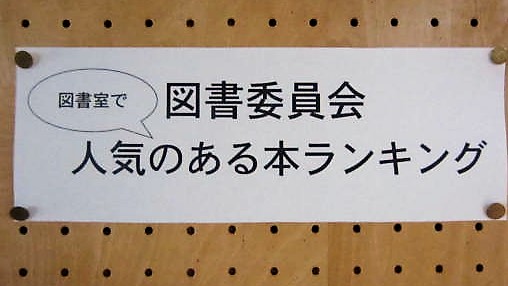 図書室で
図書委員会
人気のある本ランキング